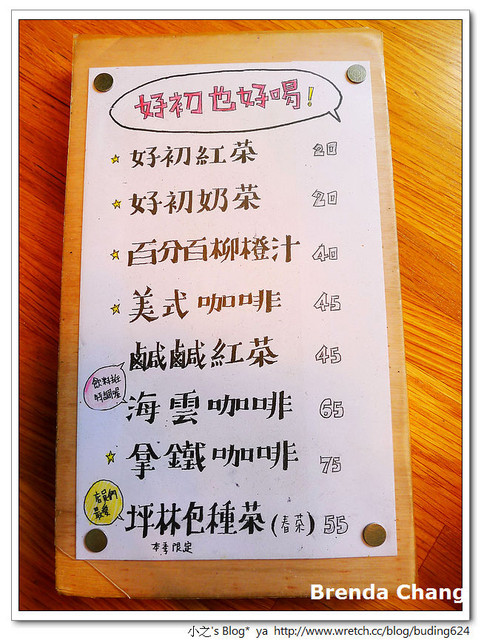 好初也好喝!
好初紅茶 20
好初奶茶 20
百分百柳橙汁 40
美式咖啡 45
鹹鹹紅茶 45
飲料班
特調喔
海雲咖啡 65
拿鐵咖啡 75
店員們
最愛
坪林包種茶(春茶) 55
本季限定
Brenda Chang
小之's Blog* ya http://www.wretch.cc/blog/buding624